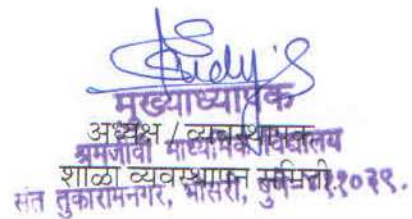 मुख्याध्यापक
अध्यक्ष / व्यवस्थापक
श्रमजीवी माध्यमिक विद्यालय
शाळा व्यवस्थापन समिती.
संत तुकारामनगर, भोसरी, पुणे ४११०३९.